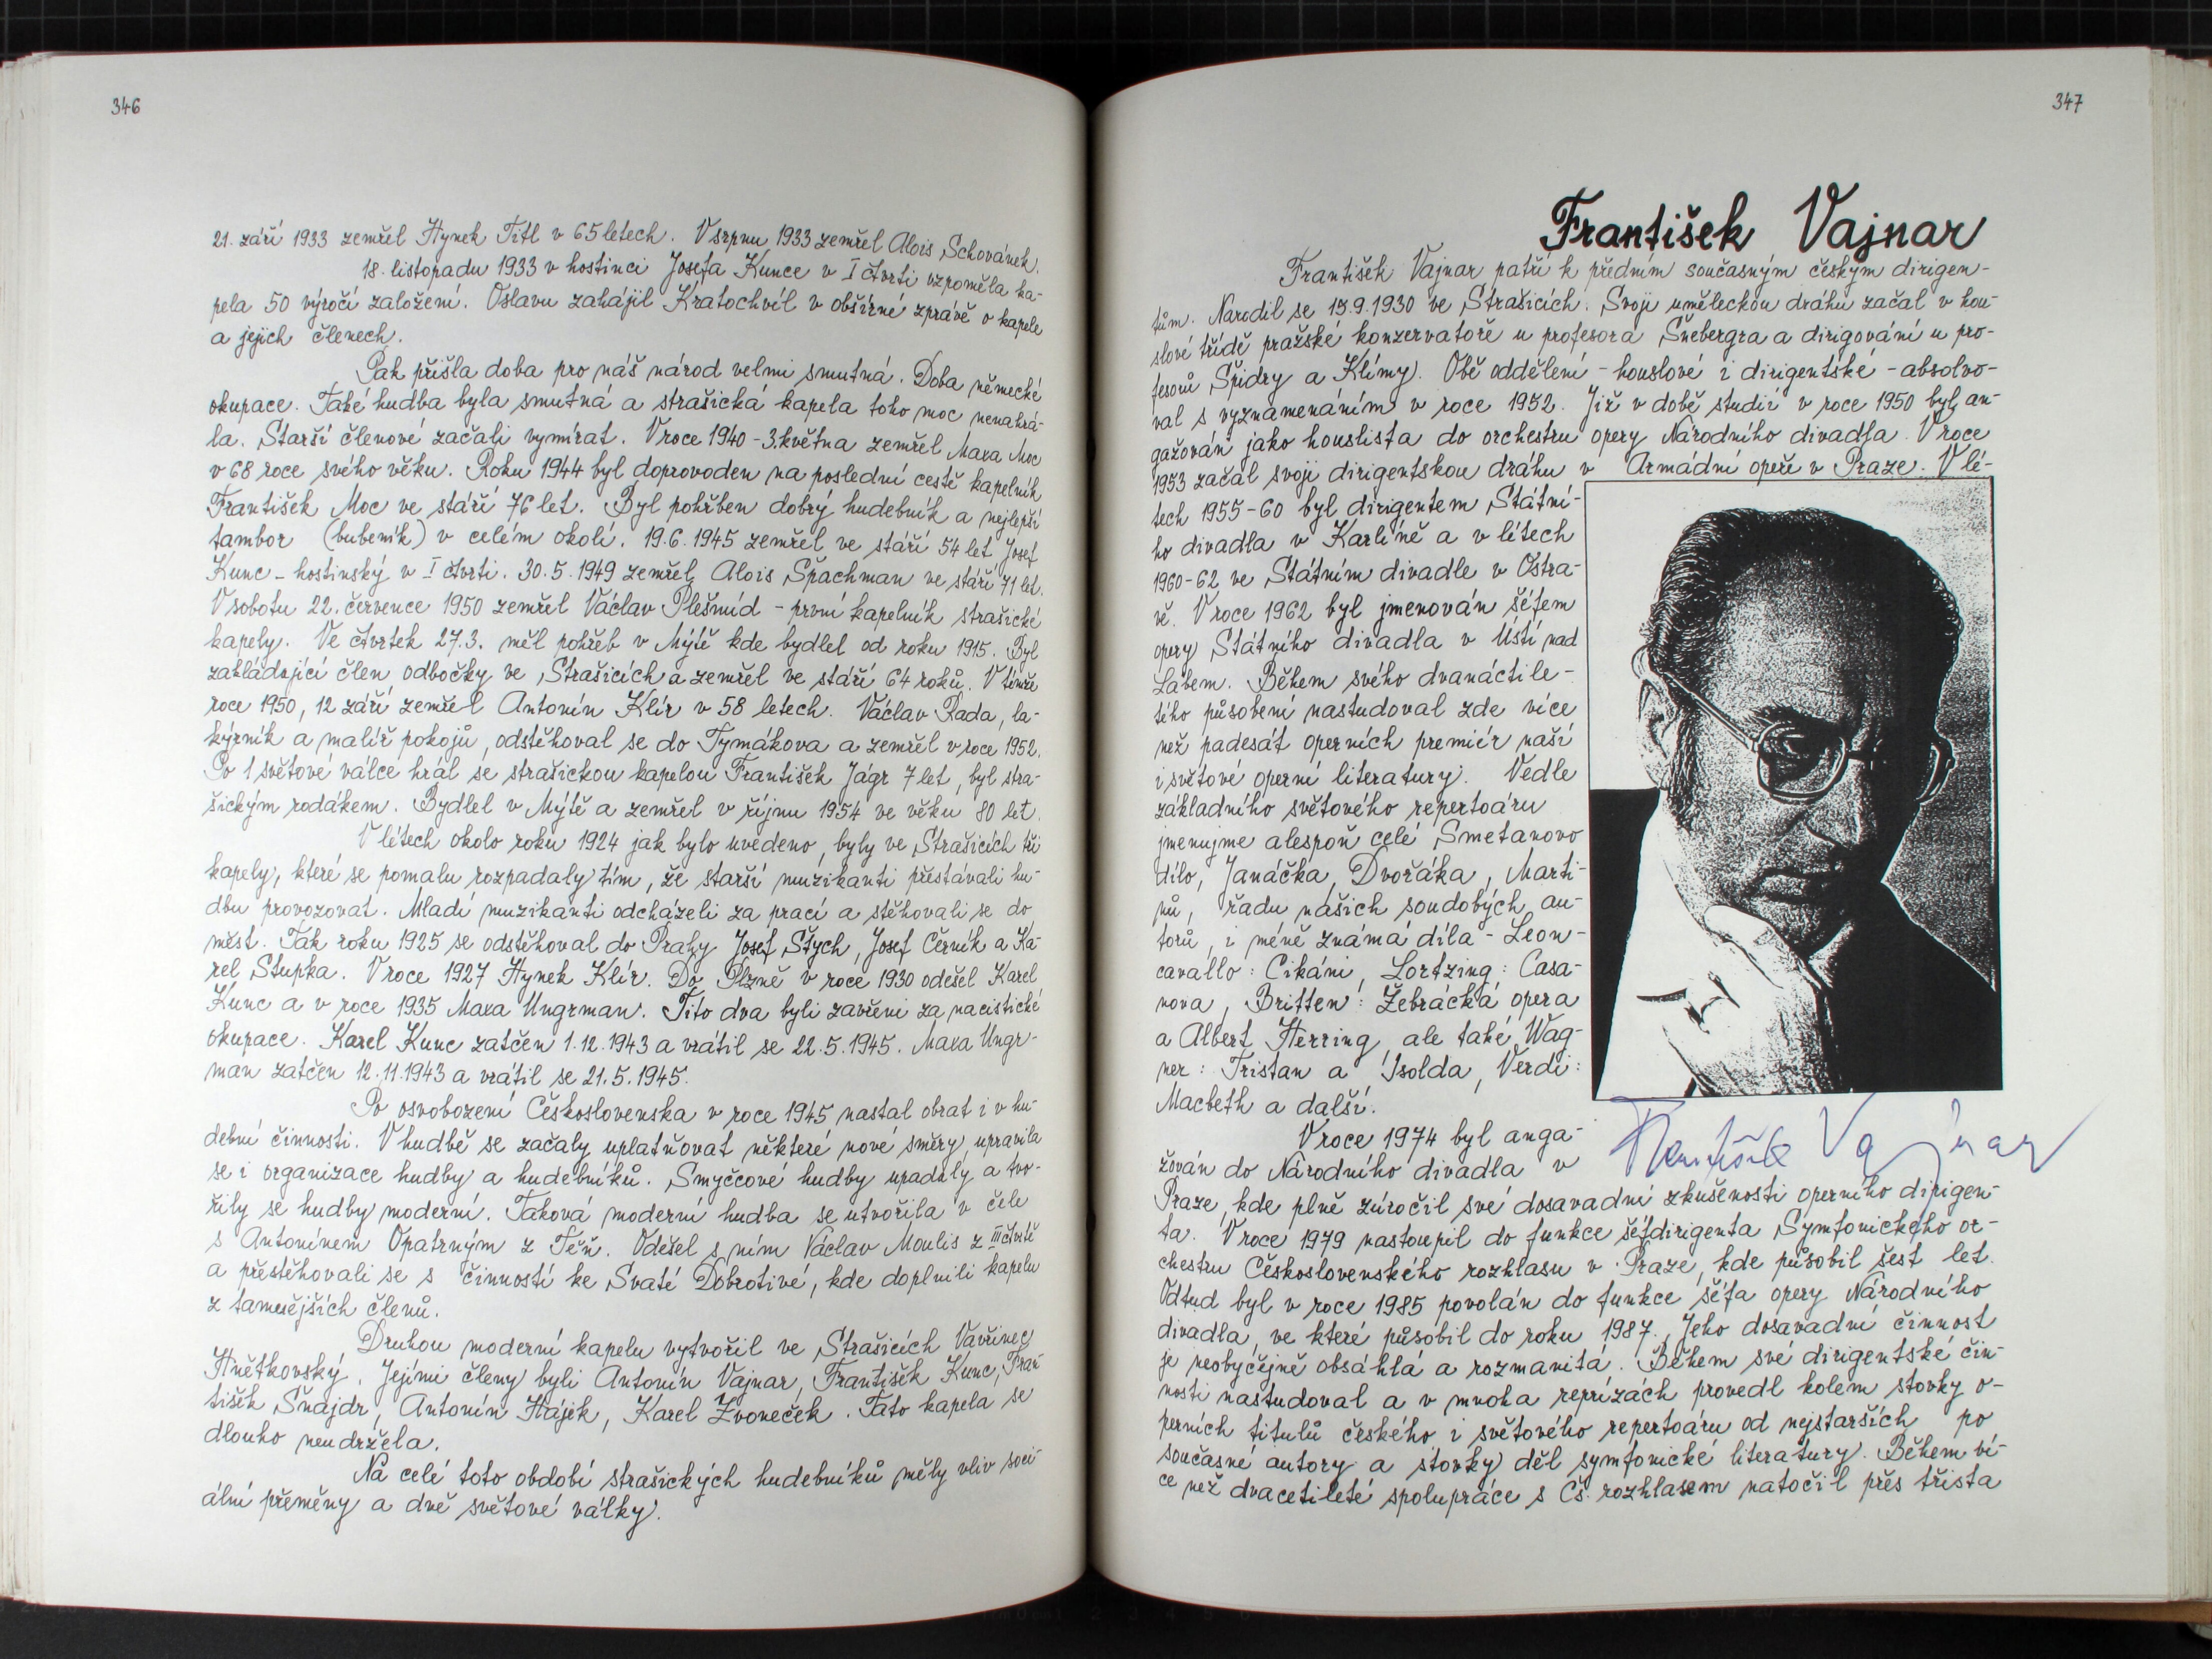 346
21. září 1933 zemřel Hynek Titl v 65 letech. V srpnu 1933 zemřel Alois Schovánek.
18. listopadu 1933 v hostinci Josefa Kunce v I čtvrti vzpoměla ka-
pela 50 výročí založení. Oslavu zahájil Kratochvíl v obšírné zprávě o kapele
a jejich členech.
Pak přišla doba pro náš národ velmi smutná. Doba německé
okupace. Také hudba byla smutná a strašická kapela toho moc nenahrá-
la. Starší členové začali vymírat. V roce 1940 - 3. května zemřel Maxa Moc
v 68 roce svého věku. Roku 1944 byl doprovoden na poslední cestě kapelník
František Moc ve stáří 76 let. Byl pohřben dobrý hudebník a nejlepší
tambor (bubeník) v celém okolí. 19.6.1945 zemřel ve stáří 54 let Josef
Kunc - hostinský v I čtvrti. 30.5.1949 zemřel Alois Špachman ve stáří 71 let.
V sobotu 22. července 1950 zemřel Václav Plešmíd - první kapelník strašické
kapely. Ve čtvrtek 27.3. měl pohřeb v Mýtě kde bydlel od roku 1915. Byl
zakládající člen odbočky ve Strašicích a zemřel ve stáří 64 roků. V tímže
roce 1950, 12 září zemřel Antonín Klír v 58 letech. Václav Rada, la-
kýrník a malíř pokojů, odstěhoval se do Tymákova a zemřel v roce 1952.
Po 1 světové válce hrál se strašickou kapelou František Jágr 7 let, byl stra-
šickým rodákem. Bydlel v Mýtě a zemřel v říjnu 1954 ve věku 80 let.
V létech okolo roku 1924 jak bylo uvedeno, byly ve Strašicích tři
kapely, které se pomalu rozpadaly tím, že starší muzikanti přestávali hu-
dbu provozovat. Mladí muzikanti odcházeli za prací a stěhovali se do
měst. Tak roku 1925 se odstěhoval do Prahy Josef Štych, Josef Černík a Ka-
rel Stupka. V roce 1927 Hynek Klír. Do Plzně v roce 1930 odešel Karel
Kunc a v roce 1935 Maxa Ungrman. Tito dva byli zavřeni za nacistické
okupace. Karel Kunc zatčen 1.12.1943 a vrátil se 22.5.1945. Maxa Ungr-
man zatčen 12.11.1943 a vrátil se 21.5.1945.
Po osvobození Československa v roce 1945 nastal obrat i v hu-
dební činnosti. V hudbě se začaly uplatňovat některé nové směry, upravila
se i organizace hudby a hudebníků. Smyčcové hudby upadaly a tvo-
řily se hudby moderní. Taková moderní hudba se utvořila v čele
s Antonínem Opatrným z Těň. Odešel s ním Václav Moulis z III čtvrtě
a přestěhovali se s činností ke Svaté Dobrotivé, kde doplnili kapelu
z tamnějších členů.
Druhou moderní kapelu vytvořil ve Strašicích Vavřinec
Hnětkovský. Jejími členy byli Antonín Vajnar, František Kunc, Fran-
tišek Šnajdr, Antonín Hájek, Karel Zvoneček. Tato kapela se
dlouho neudržela.
Na celé toto období strašických hudebníků měly vliv soci-
ální přeměny a dvě světové války.
347
František Vajnar
František Vajnar patří k předním současným českým dirigen-
tům. Narodil se 15.9.1930 ve Strašicích. Svoji uměleckou dráhu začal v hou-
slové třídě pražské konzervatoře u profesora Šnebergra a dirigování u pro-
fesorů Špidry a Klímy. Obě oddělení - houslové i dirigentské - absolvo-
val s vyznamenáním v roce 1952. Již v době studií v roce 1950 byl an-
gažován jako houslista do orchestru opery Národního divadla. V roce
1953 začal svoji dirigentskou dráhu v Armádní opeře v Praze. V lé-
tech 1955-60 byl dirigentem Státní-
ho divadla v Karlíně a v létech
1960-62 ve Státním divadle v Ostra-
vě. V roce 1962 byl jmenován šéfem
opery Státního divadla v Ústí nad
Labem. Během svého dvanáctile-
tého působení nastudoval zde více
než padesát operních premiér naší
i světové operní literatury. Vedle
základního světového repertoáru
jmenujme alespoň celé Smetanovo
dílo, Janáčka, Dvořáka, Marti-
nů, řadu našich soudobých au-
torů, i méně známá díla - Leon-
cavallo: Cikáni, Lortzing: Casa-
nova, Britten: Žebrácká opera
a Albert Herring, ale také Wag-
ner: Tristan a Isolda, Verdi:
Macbeth a další.
V roce 1974 byl anga-
žován do Národního divadla v
František Vajnar
Praze, kde plně zúročil své dosavadní zkušenosti operního dirigen-
ta. V roce 1979 nastoupil do funkce šéfdirigenta Symfonického or-
chestru Československého rozhlasu v Praze, kde působil šest let.
Odtud byl v roce 1985 povolán do funkce šéfa opery Národního
divadla, ve které působil do roku 1987. Jeho dosavadní činnost
je neobyčejně obsáhlá a rozmanitá. Během své dirigentské čin-
nosti nastudoval a v mnoha reprízách provedl kolem stovky o-
perních titulů českého i světového repertoáru od nejstarších po
současné autory a stovky děl symfonické literatury. Během ví-
ce než dvacetileté spolupráce s Čs. rozhlasem natočil přes třista